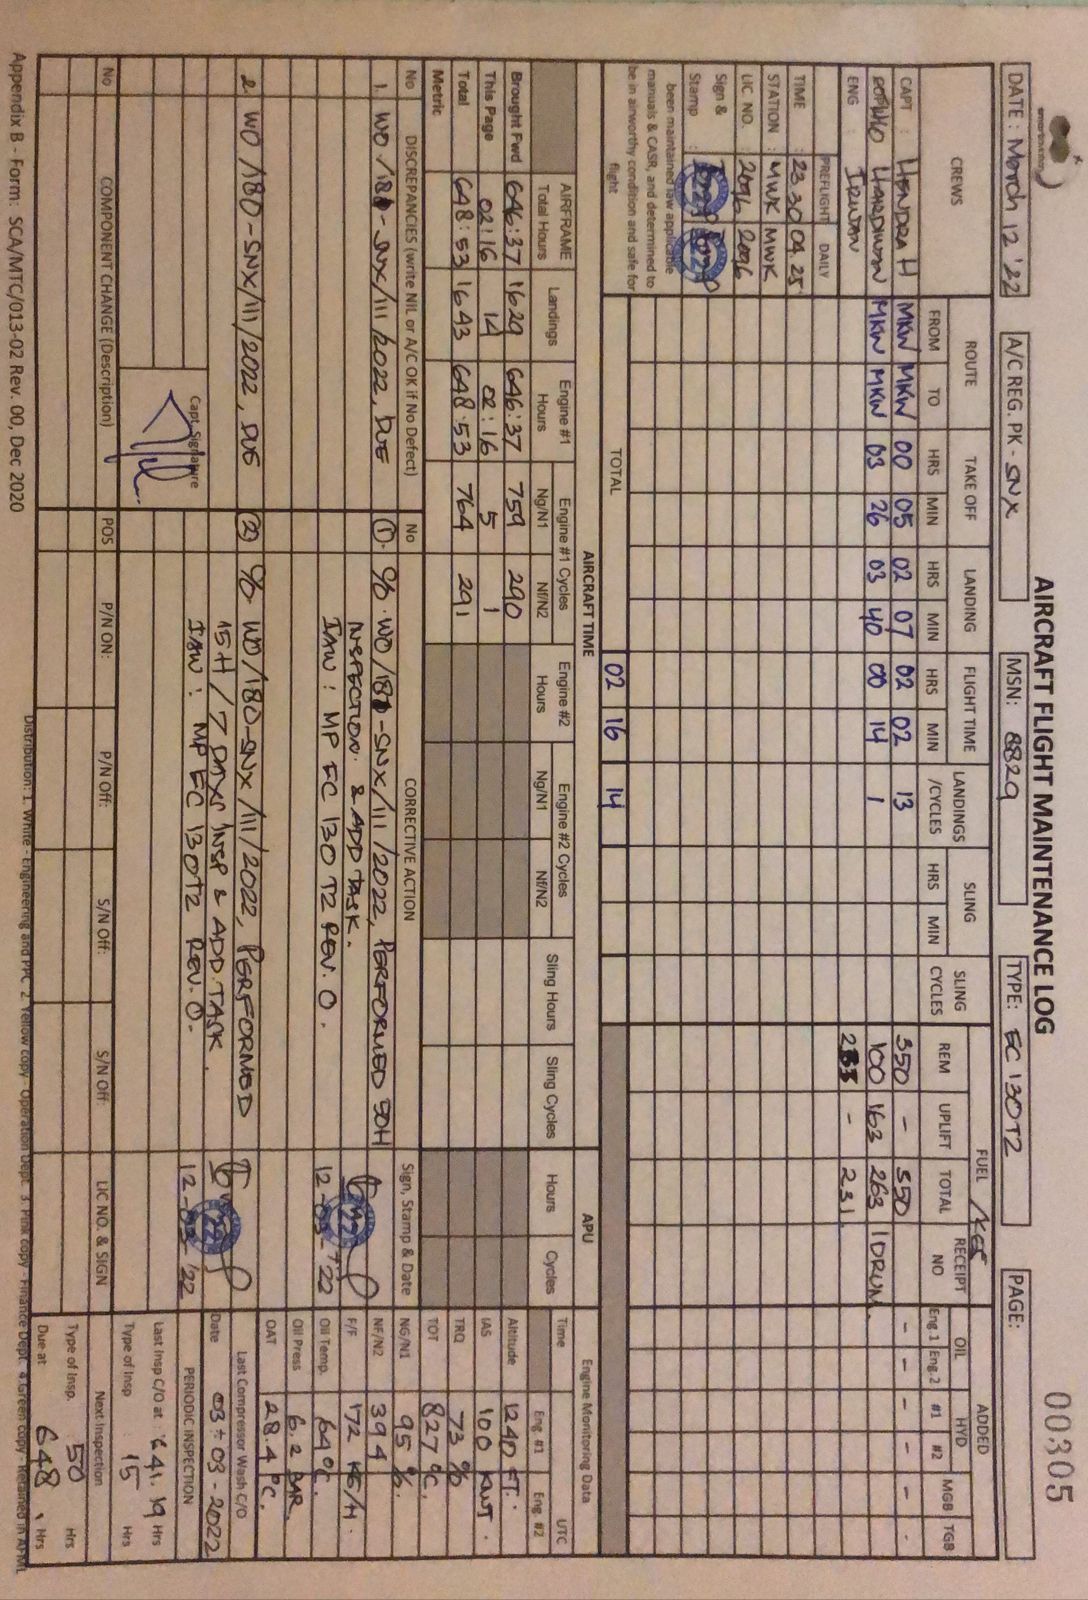 AIRCRAFT FLIGHT MAINTENANCE LOG
00305
DATE : March 12 '22
A/C REG. PK - SNX
MSN: 8829
TYPE: EC 130T2
PAGE:
CREWS ROUTE TAKE OFF LANDING FLIGHT TIME LANDINGS /CYCLES SLING SLING CYCLES FUEL /KGS ADDED
FROM TO HRS MIN HRS MIN HRS MIN HRS MIN REM UPLIFT TOTAL RECEIPT NO OIL HYD MGB TGB
Eng 1 Eng.2 #1 #2
CAPT : HENDRA H MKW MKW 00 05 02 07 02 02 13 350 - 350 - - - - - -
HARDIWAN MKW MKW 03 26 03 40 00 14 1 100 163 263 1DRUM
ENG : IRWAN - 231
PREFLIGHT DAILY
TIME : 23.30 09.25
STATION : MWK MWK
LIC NO. : 2096 2096
Sign & Stamp :
been maintained iaw applicable
manuals & CASR, and determined to
be in airworthy condition and safe for
flight
TOTAL 02 16 14
AIRCRAFT TIME APU Engine Monitoring Data
AIRFRAME Total Hours Landings Engine #1 Hours Engine #1 Cycles Ng/N1 Nf/N2 Engine #2 Hours Engine #2 Cycles Ng/N1 Nf/N2 Sling Hours Sling Cycles Hours Cycles Time UTC
Eng. #1 Eng. #2
Brought Fwd 646:37 1629 646:37 759 290 Altitude 1240 FT.
This Page 02:16 14 02:16 5 1 IAS 100 KNT.
Total 648:53 1643 648:53 764 291 TRQ 73 %
Metric TOT 827 °C.
No DISCREPANCIES (write NIL or A/C OK if No Defect) No CORRECTIVE ACTION Sign, Stamp & Date NG/N1 95 %.
NF/N2 394
F/F 172 KG/H.
Oil Temp. 64 °C.
Oil Press 6.2 BAR
OAT 28.4 °C.
1. -SNX/III/2022, DUE
1. -SNX/III/2022, PERFORMED 50H
INSPECTION. & ADD TASK.
IAW : MP EC 130 T2 REV. 0.
12-03-'22
2. WO/180-SNX/III/2022, DUE
2 WO/180-SNX/III/2022, PERFORMED
15H/7 DAYS INSP & ADD. TASK.
IAW : MP EC 130T2 REV. 0.
12-03-'22
Capt. Signature
Last Compressor Wash C/O
Date 03-03-2022
PERIODIC INSPECTION
Last Insp C/O at : 641.19 Hrs
Type of Insp 15 Hrs
Next Inspection
Type of Insp. 50 Hrs
Due at 648 Hrs
No COMPONENT CHANGE (Description) POS P/N ON: P/N Off: S/N Off: S/N Off: LIC NO. & SIGN
Distribution: 1. White - Engineering and PPC 2. Yellow copy - Operation Dept. 3. Pink copy - Finance Dept. 4. Green copy - Retained in AFML
Appendix B - Form: SCA/MTC/013-02 Rev. 00, Dec 2020